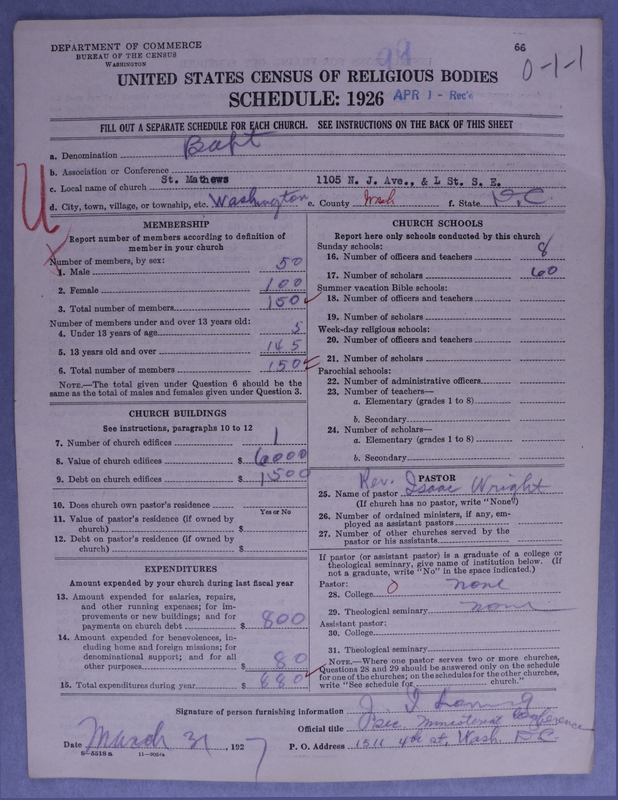 DEPARTMENT OF COMMERCE
BUREAU OF THE CENSUS
WASHINGTON
99
66
0-1-1
UNITED STATES CENSUS OF RELIGIOUS BODIES
SCHEDULE: 1926 APR 1 - Rec'd
FILL OUT A SEPARATE SCHEDULE FOR EACH CHURCH. SEE INSTRUCTIONS ON THE BACK OF THIS SHEET
a. Denomination Bapt
b. Association or Conference
c. Local name of church St. Mathews 1105 N. J. Ave., & L St. S. E.
d. City, town, village, or township, etc. Washington e. County Wash f. State D.C.
U
X
MEMBERSHIP
Report number of members according to definition of member in your church
Number of members, by sex:
1. Male 50
2. Female 100
3. Total number of members 150 ✓
Number of members under and over 13 years old:
4. Under 13 years of age 5
5. 13 years old and over 145
6. Total number of members 150 ✓
NOTE.—The total given under Question 6 should be the
same as the total of males and females given under Question 3.
CHURCH BUILDINGS
See instructions, paragraphs 10 to 12
7. Number of church edifices 1
8. Value of church edifices $ 6000
9. Debt on church edifices $ 1500
10. Does church own pastor's residence
Yes or No
11. Value of pastor's residence (if owned by
church) $
12. Debt on pastor's residence (if owned by
church) $
EXPENDITURES
Amount expended by your church during last fiscal year
13. Amount expended for salaries, repairs,
and other running expenses; for im-
provements or new buildings; and for
payments on church debt $ 800
14. Amount expended for benevolences, in-
cluding home and foreign missions; for
denominational support; and for all
other purposes $ 80
15. Total expenditures during year $ 880 ✓
CHURCH SCHOOLS
Report here only schools conducted by this church
Sunday schools:
16. Number of officers and teachers 8
17. Number of scholars 60
Summer vacation Bible schools:
18. Number of officers and teachers
19. Number of scholars
Week-day religious schools:
20. Number of officers and teachers
21. Number of scholars
Parochial schools:
22. Number of administrative officers
23. Number of teachers—
a. Elementary (grades 1 to 8)
b. Secondary
24. Number of scholars—
a. Elementary (grades 1 to 8)
b. Secondary
PASTOR
25. Name of pastor Rev. Isaac Wright
(If church has no pastor, write "None")
26. Number of ordained ministers, if any, em-
ployed as assistant pastors
27. Number of other churches served by the
pastor or his assistants
If pastor (or assistant pastor) is a graduate of a college or
theological seminary, give name of institution below. (If
not a graduate, write "No" in the space indicated.)
Pastor:
28. College 0 none
29. Theological seminary none
Assistant pastor:
30. College
31. Theological seminary
NOTE.—Where one pastor serves two or more churches,
Questions 28 and 29 should be answered only on the schedule
for one of the churches; on the schedules for the other churches,
write "See schedule for church."
Signature of person furnishing information J. I.
Official title Sec. Ministerial Conference
Date March 31, 1927 P. O. Address 1511 4th st, Wash. D.C.
8—5518 a